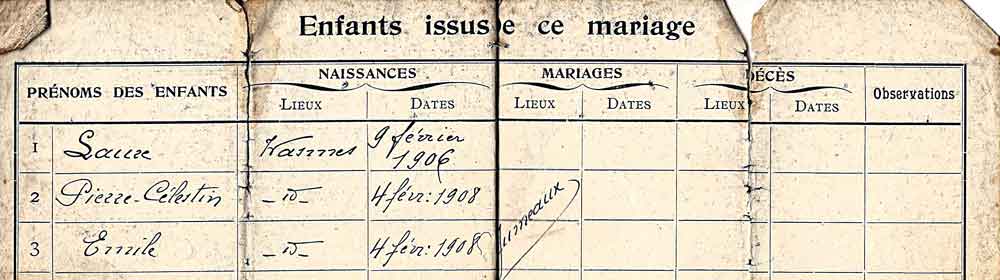 Enfants issus de ce mariage
PRÉNOMS DES ENFANTS
NAISSANCES
MARIAGES
DÉCÈS
Observations
LIEUX
DATES
LIEUX
DATES
LIEUX
DATES
1 Laure Wasmes 9 février
1906
2 Pierre-Célestin -id- 4 févr: 1908
3 Emile -id- 4 févr: 1908
Jumeaux